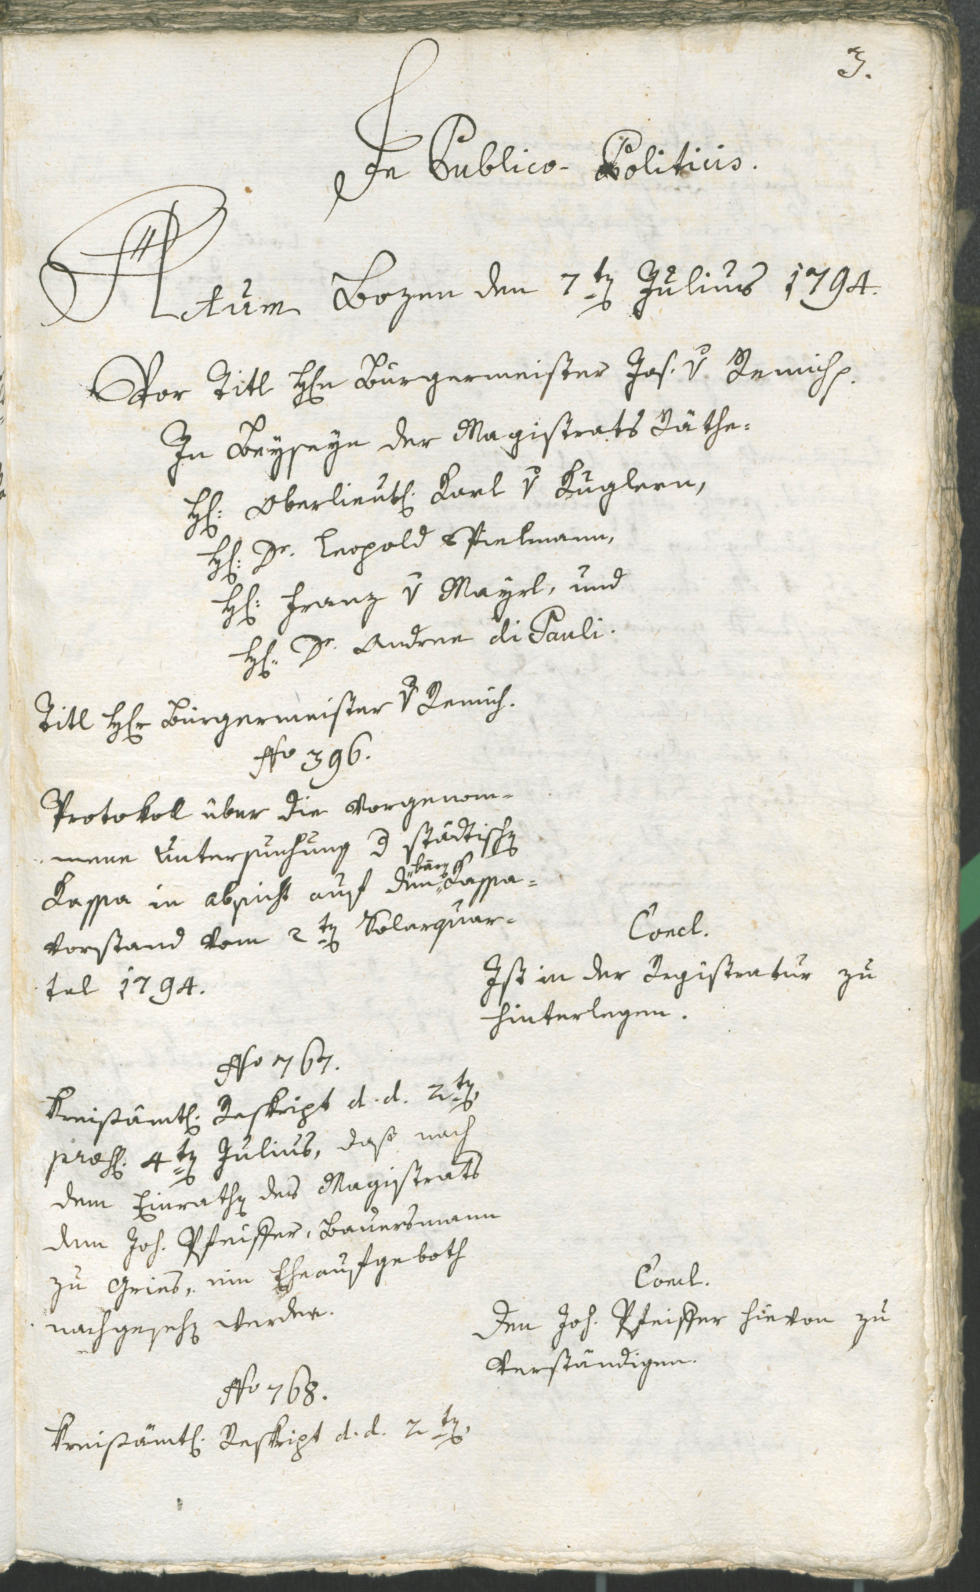 3.
In Publico-Politicis.
Actum Bozen den 7ten Julius 1794.
Vor Titl Hrn Bürgermeister Jos. v. Remich.
In Beyseyn der Magistrats Räthe:
H: Oberlieut. Karl v Kuglern,
H: Dr. Leopold Spielmann,
H: Franz v Mayrl, und
H: Dr. Andree di Pauli.
Titl Hr Bürgermeister v Remich.
No 396.
Protokoll über die vorgenom-
mene Untersuchung d städtischen
Kassa in absicht auf den Kassa-
vorstand vom 2ten Solarquar-
tal 1794.
Concl.
Ist in der Registratur zu
hinterlegen.
No 767.
Kreisämtl. Reskript d. d. 2ten
præs. 4ten Julius, daß nach
dem Einrathen des Magistrats
dem Joh. Pfeiffer, Bauersmann
zu Gries, ein Eheaufgeboth
nachgesehen werde.
Concl.
Den Joh. Pfeiffer hievon zu
verständigen.
No 768.
Kreisämtl. Reskript d. d. 2ten